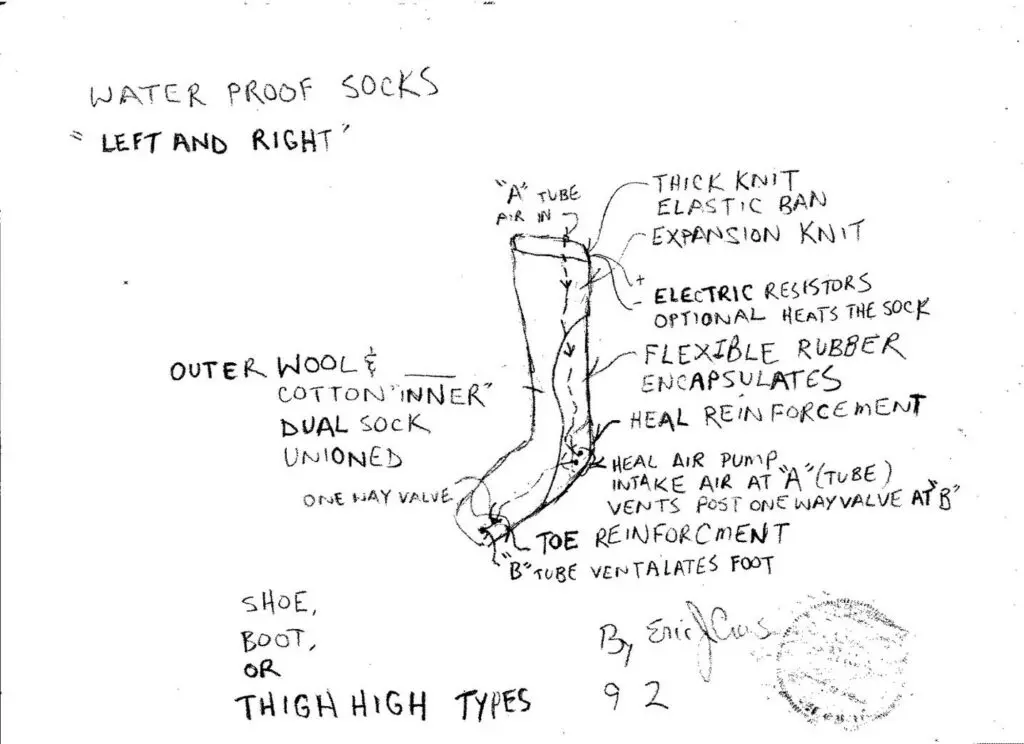 WATER PROOF SOCKS
"LEFT AND RIGHT"
"A" TUBE
AIR IN
THICK KNIT
ELASTIC BAN
EXPANSION KNIT
+
-
ELECTRIC RESISTORS
OPTIONAL HEATS THE SOCK
FLEXIBLE RUBBER
ENCAPSULATES
OUTER WOOL &
COTTON "INNER"
DUAL SOCK
UNIONED
HEAL REINFORCEMENT
HEAL AIR PUMP
INTAKE AIR AT "A" (TUBE)
VENTS POST ONE WAY VALVE AT "B"
ONE WAY VALVE
TOE REINFORCMENT
"B" TUBE VENTALATES FOOT
SHOE,
BOOT,
OR
THIGH HIGH TYPES
By Eric J
92